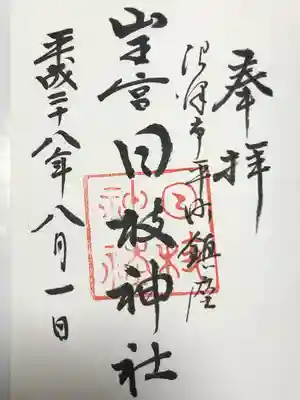 奉拝
沼津市平町鎮座
山王宮 日枝神社
平成二十八年八月一日